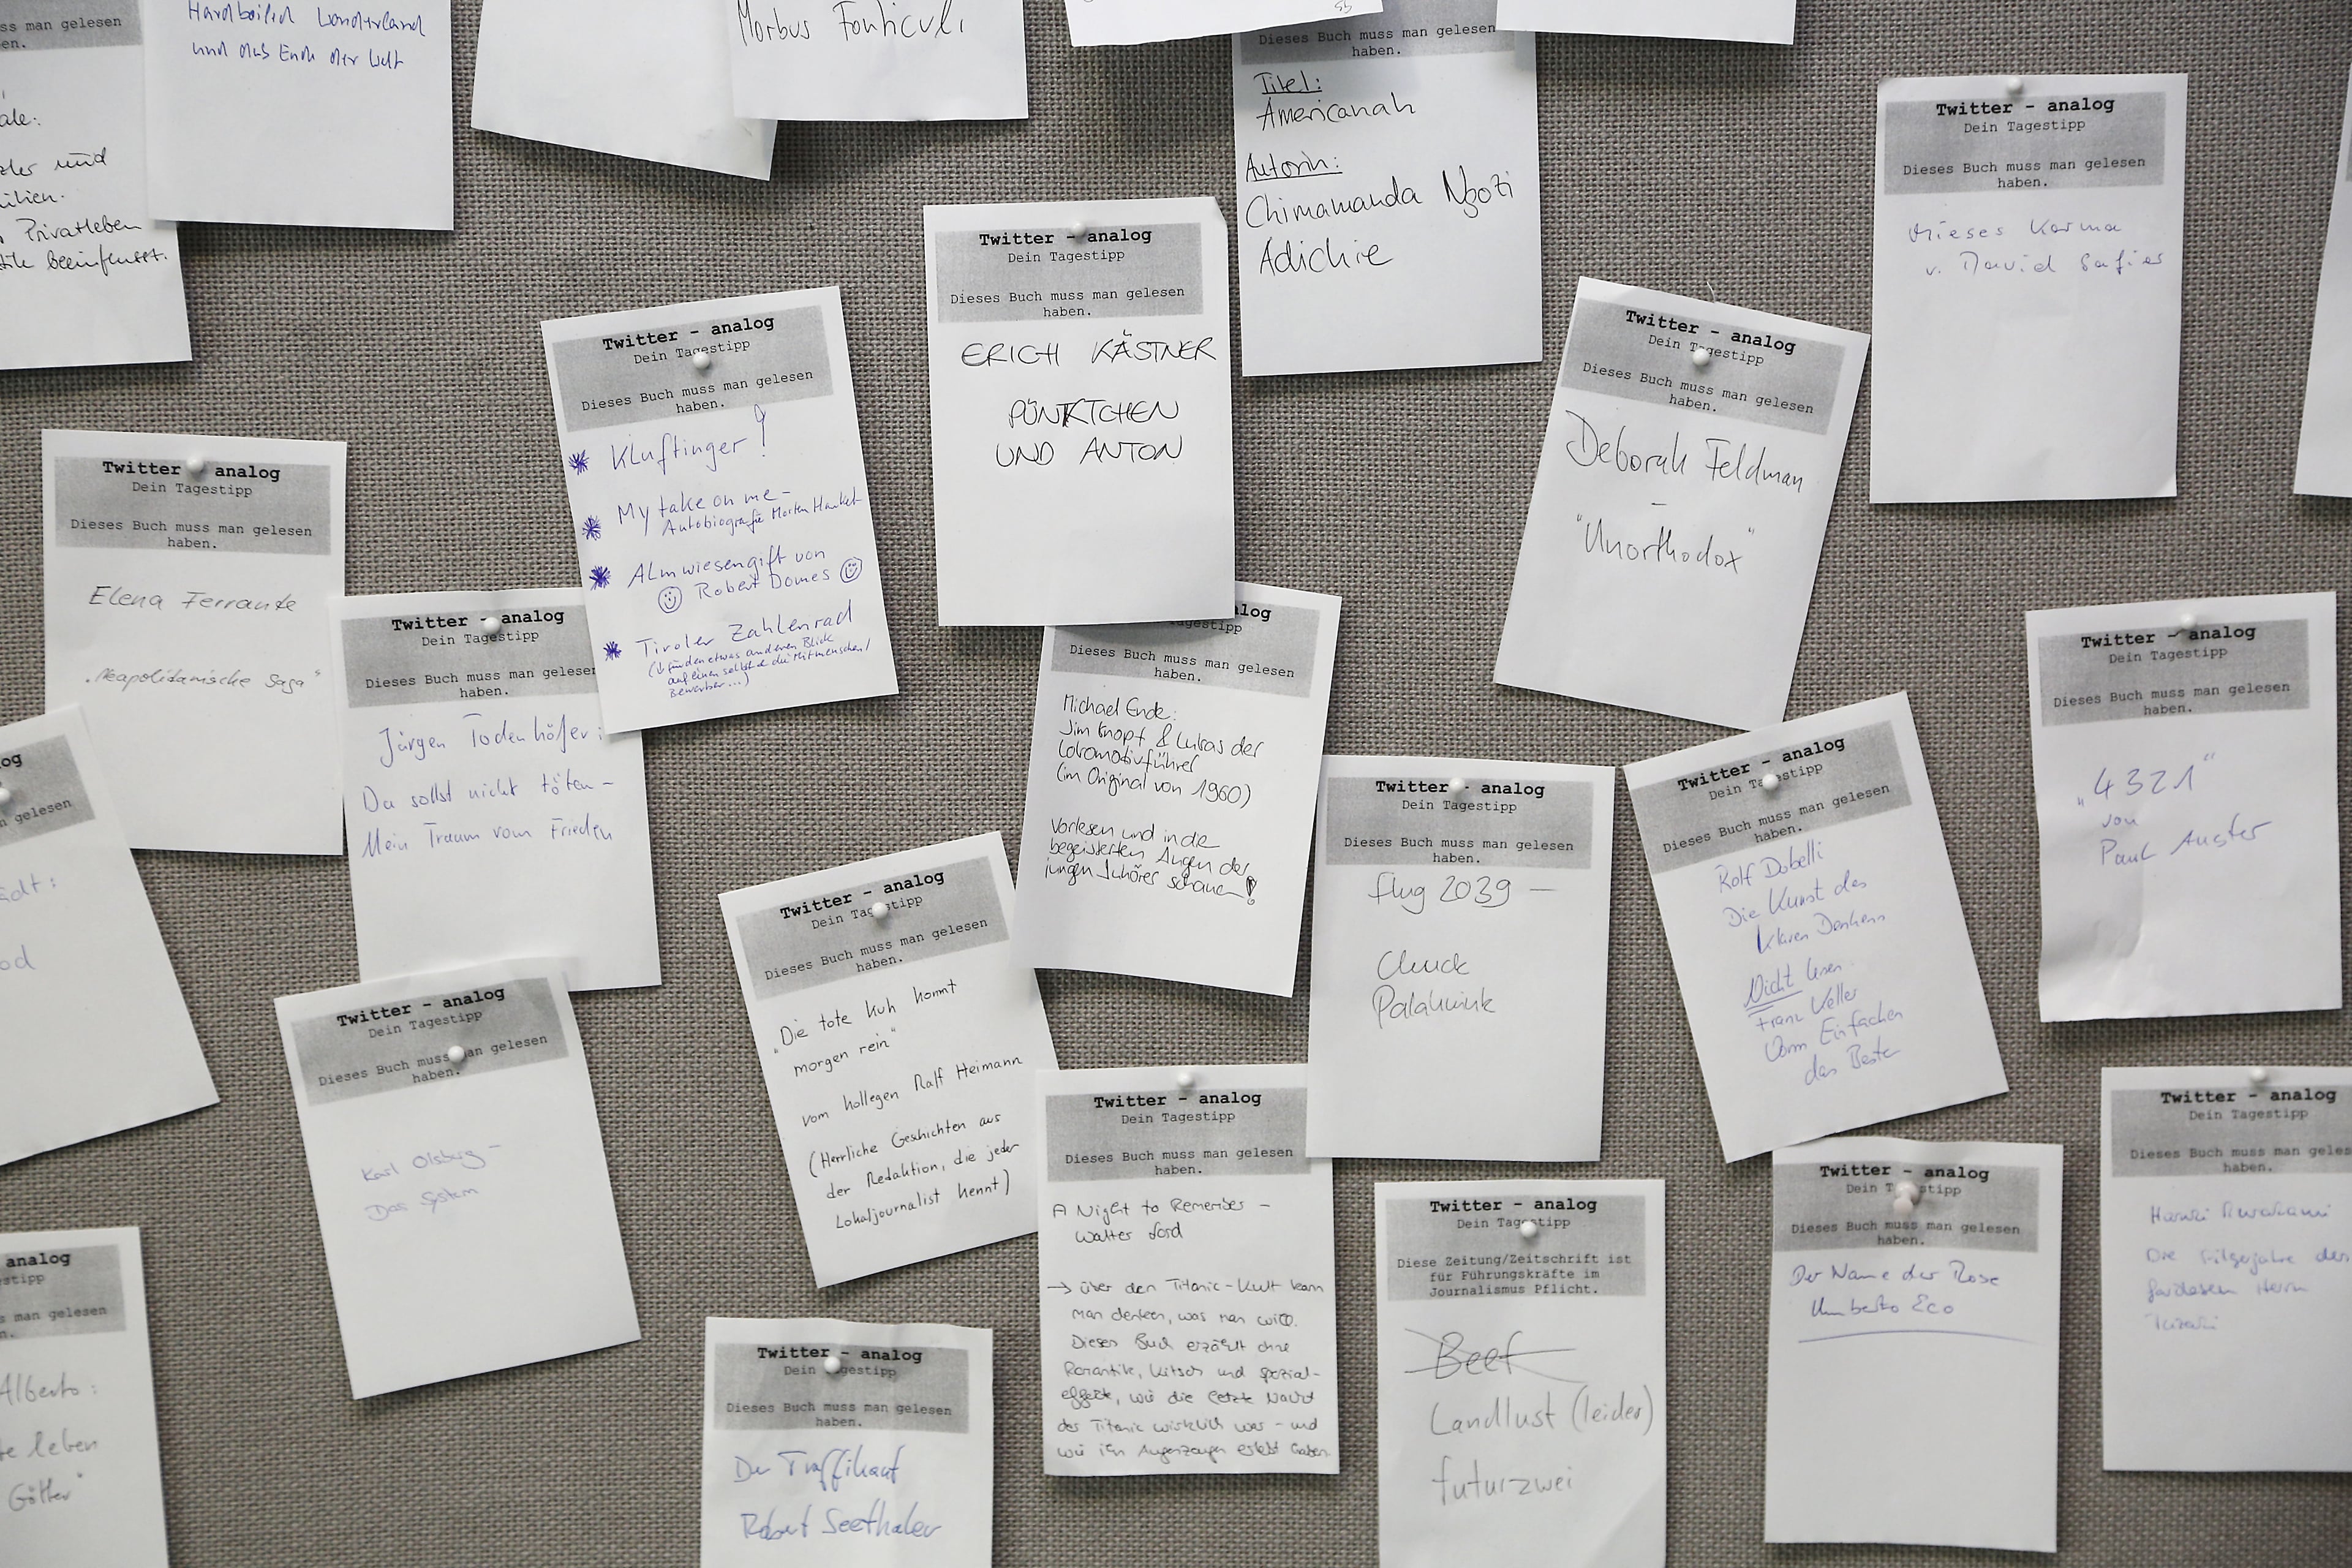 ss man gelesen
en.
ale:
und
Privatleben
beeinflusst.
Hardboiled Wonderland
und das Ende der Welt
Morbus Fonticuli
Dieses Buch muss man gelesen
haben.
Titel:
Americanah
Autorin:
Chimamanda Ngozi
Adichie
Twitter - analog
Dein Tagestipp
Dieses Buch muss man gelesen
haben.
Mieses Karma
v. David Safier
Twitter - analog
Dein Tagestipp
Dieses Buch muss man gelesen
haben.
ERICH KÄSTNER
PÜNKTCHEN
UND ANTON
Twitter - analog
Dein Tagestipp
Dieses Buch muss man gelesen
haben.
Kluftinger!
My take on me -
Autobiografie Morten Harket
Almwiesengift von
Robert Domes
Tiroler Zahlenrad
(für den etwas anderen Blick
auf einen selbst & die Mitmenschen/
Bewerber...)
Twitter - analog
Dein Tagestipp
Dieses Buch muss man gelesen
haben.
Deborah Feldman
-
"Unorthodox"
Twitter - analog
Dein Tagestipp
Dieses Buch muss man gelesen
haben.
Elena Ferrante
„Neapolitanische Saga"
Twitter - analog
Dein Tagestipp
Dieses Buch muss man gelesen
haben.
Jürgen Todenhöfer:
Du sollst nicht töten -
Mein Traum vom Frieden
alog
agestipp
Dieses Buch muss man gelesen
haben.
Michael Ende:
Jim Knopf & Lukas der
Lokomotivführer
(im Original von 1960)
Vorlesen und in die
begeisterten Augen der
jungen Zuhörer schauen!
Twitter - analog
Dein Tagestipp
Dieses Buch muss man gelesen
haben.
„4321"
von
Paul Auster
og
n gelesen
ädt:
od
Twitter - analog
Dein Tagestipp
Dieses Buch muss man gelesen
haben.
Flug 2039 -
Chuck
Palahniuk
Twitter - analog
Dein Tagestipp
Dieses Buch muss man gelesen
haben.
Rolf Dobelli
Die Kunst des
klaren Denkens
Nicht lesen:
Franz Keller
Vom Einfachen
das Beste
Twitter - analog
Dein Tagestipp
Dieses Buch muss man gelesen
haben.
„Die tote Kuh kommt
morgen rein"
vom Kollegen Ralf Heimann
(Herrliche Geschichten aus
der Redaktion, die jeder
Lokaljournalist kennt)
Twitter - analog
Dein Tagestipp
Dieses Buch muss man gelesen
haben.
Karl Olsberg -
Das System
Twitter - analog
Dein Tagestipp
Dieses Buch muss man gelesen
haben.
A Night to Remember -
Walter Lord
→ über den Titanic-Kult kann
man denken, was man will.
Dieses Buch erzählt ohne
Romantik, Kitsch und Spezial-
effekte, wie die letzte Nacht
der Titanic wirklich war - und
wie ihn Augenzeugen erlebt haben.
Twitter - analog
Dein Tagestipp
Diese Zeitung/Zeitschrift ist
für Führungskräfte im
Journalismus Pflicht.
Beef
Landlust (leider)
futurzwei
Twitter - analog
Dein Tagestipp
Dieses Buch muss man gelesen
haben.
Der Name der Rose
Umberto Eco
Twitter - analog
Dein Tagestipp
Dieses Buch muss man geles
haben.
Haruki Murakami
Die Pilgerjahre des
farblosen Herrn
Tazaki
analog
stipp
s man gelesen
n.
Alberto:
te leben
Götter"
Twitter - analog
Dein Tagestipp
Dieses Buch muss man gelesen
haben.
Der Traffikant
Robert Seethaler